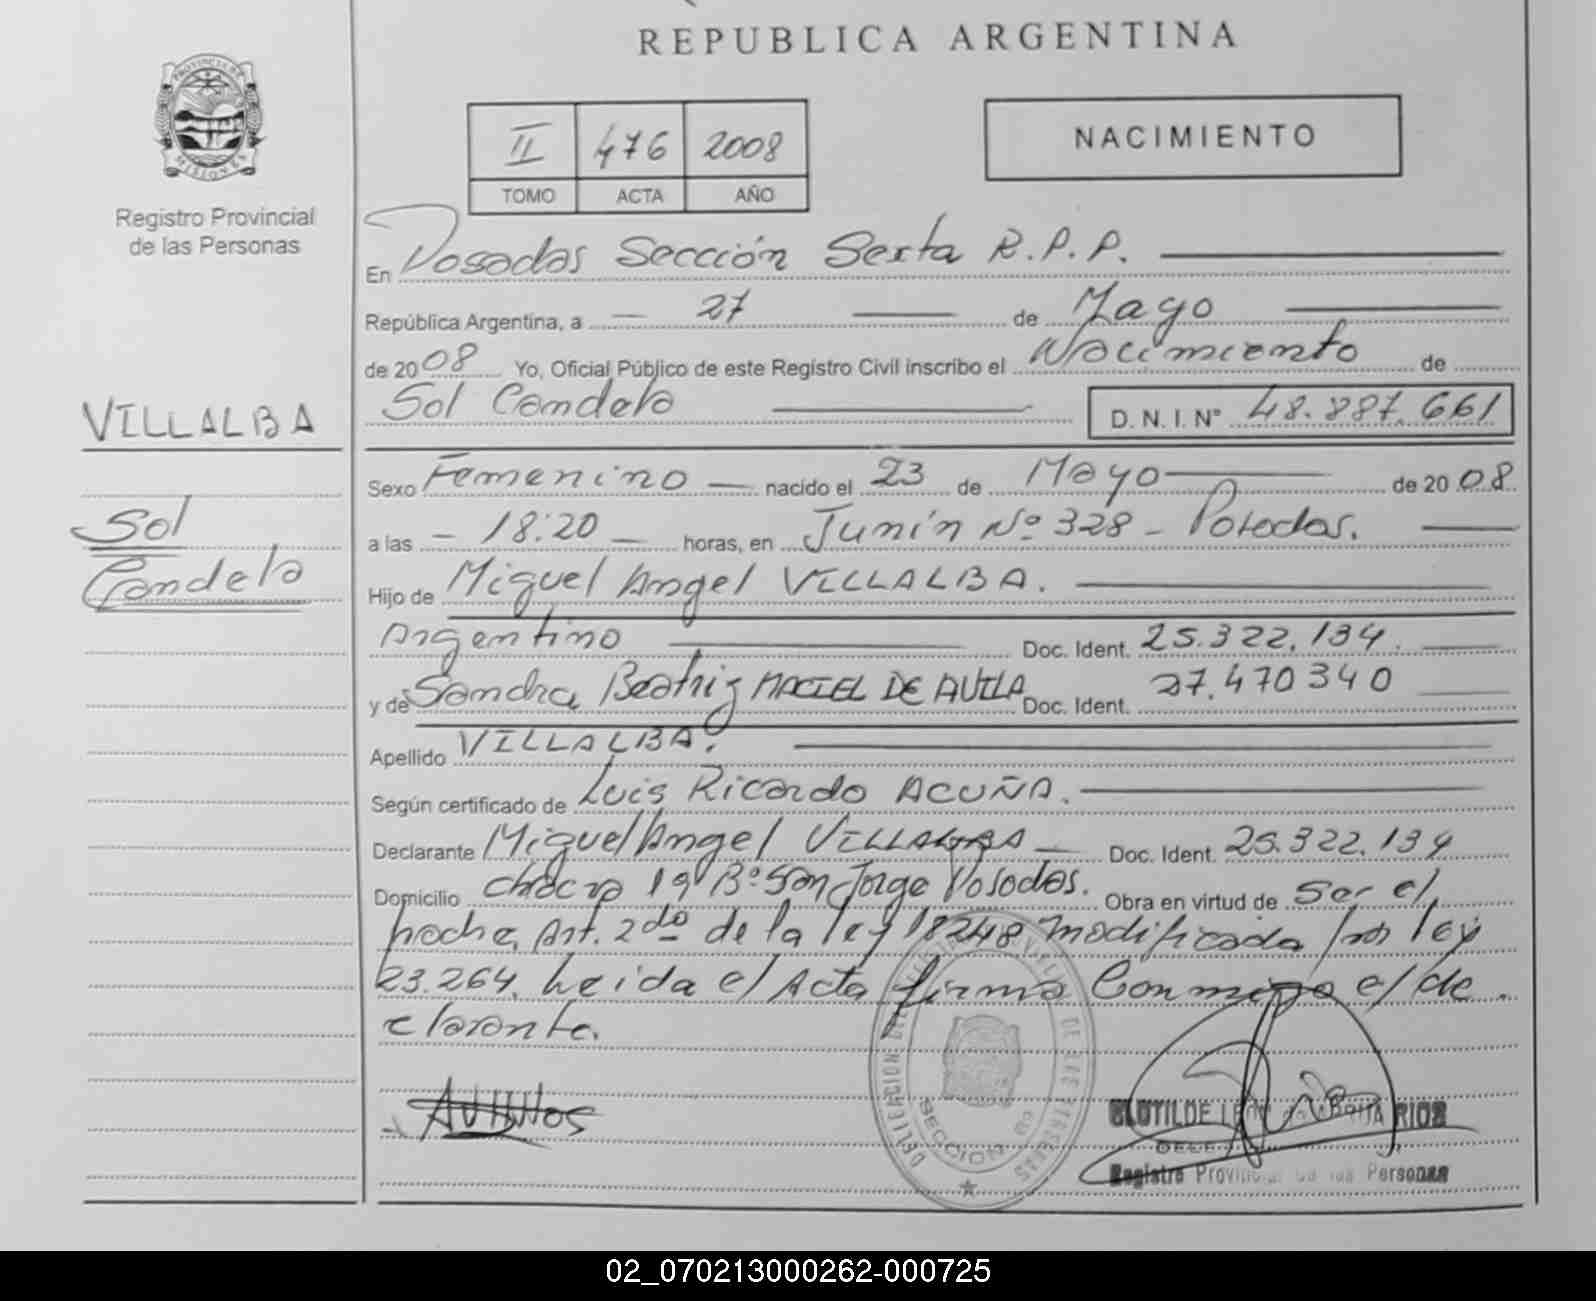 REPUBLICA ARGENTINA
PROVINCIA DE
MISIONES
Registro Provincial
de las Personas
II 476 2008
TOMO ACTA AÑO
NACIMIENTO
En Posadas Sección Sexta R.P.P.
República Argentina, a 27 de Mayo
de 2008 Yo, Oficial Público de este Registro Civil inscribo el Nacimiento de
Sol Candela D. N. I. N° 48.887.661
VILLALBA
Sol
Candela
Sexo Femenino nacido el 23 de Mayo de 2008
a las - 18:20 - horas, en Junín Nº 328 - Posadas.
Hijo de Miguel Angel VILLALBA.
Argentino Doc. Ident. 25.322.134.
y de Sandra Beatriz MACIEL DE AVILA Doc. Ident. 27.470340
Apellido VILLALBA.
Según certificado de Luis Ricardo ACUÑA.
Declarante Miguel Angel VILLALBA Doc. Ident. 25.322.134
Domicilio chacra 19 Bº San Jorge Posadas. Obra en virtud de Ser el
hecho, Art. 2do de la ley 18248 modificada por ley
23.264. Leida el Acta firma Conmigo el de
clarante.
SECCION 6º
CLOTILDE RIOS
Registro Provincial de las Personas
02_070213000262-000725